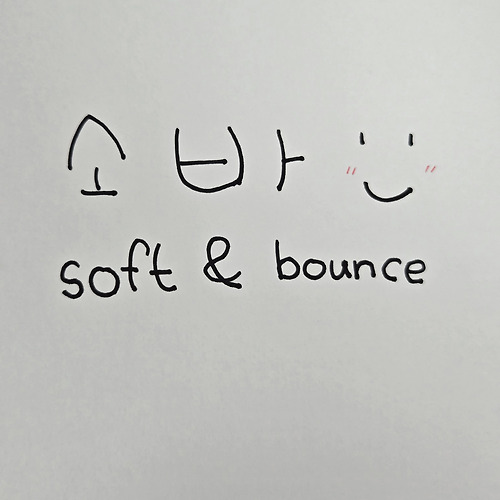 소바
soft & bounce